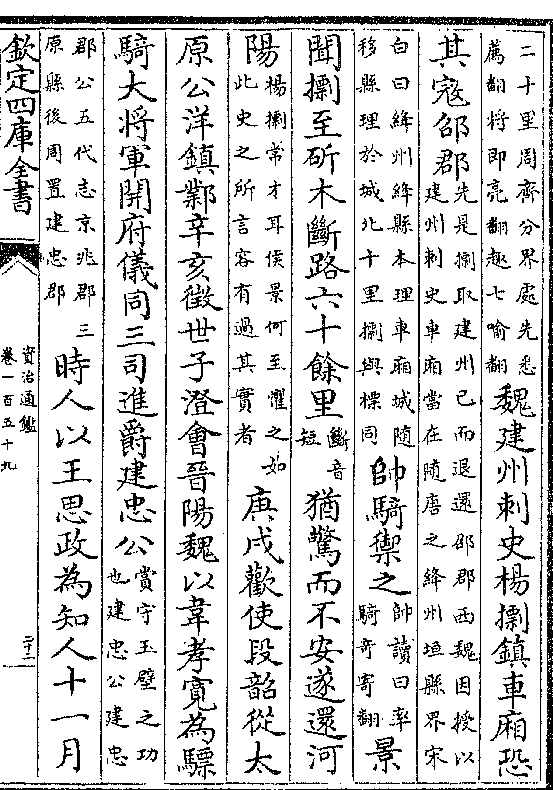 二十里周齊分界處先悉
薦翻將即亮翻趣七喻翻
魏建州刺史楊檦鎮車廂恐
其寇邵郡
先是檦取建州已而退還邵郡西魏因授以
建州刺史車廂當在隨唐之絳州垣縣界宋
白曰絳州絳縣本理車廂城隨
移縣理於城北十里檦與標同
帥騎禦之
帥讀曰率
騎奇寄翻
景
聞檦至斫木斷路六十餘里
斷音
短
猶驚而不安遂還河
陽
楊檦常才耳侯景何至懼之如
此史之所言容有過其實者
庚戌歡使段韶從太
原公洋鎮鄴辛亥徵世子澄會晉陽魏以韋孝寬為驃
騎大將軍開府儀同三司進爵建忠公
賞守玉壁之功
也建忠公建忠
郡公五代志京兆郡三
原縣後周置建忠郡
時人以王思政為知人十一月
欽定四庫全書
資治通鑑
卷一百五十九
二十二